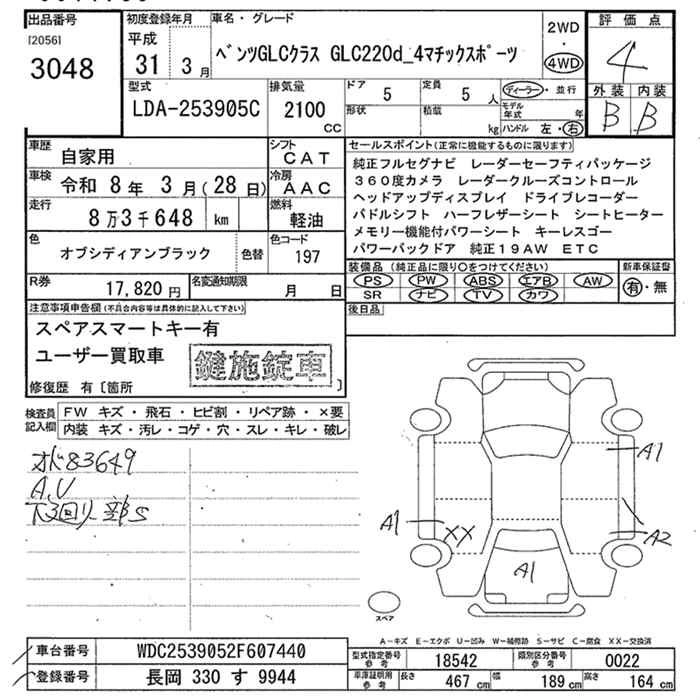 出品番号
[2056]
3048
初度登録年月
平成
31 3月
車名・グレード
ベンツGLCクラス GLC220d_4マチックスポーツ
2WD
・
4WD
評価点
4
外装 内装
B B
型式
LDA-253905C
排気量
2100
CC
ドア 5
定員 5 人
形状
積載 kg
ディーラー・並行
モデル年式 年
ハンドル 左・右
車歴 自家用
シフト CAT
車検 令和 8年 3月(28日)
冷房 AAC
走行 8万3千648 km
燃料 軽油
色 オブシディアンブラック
色替
色コード 197
R券 17,820円
名変通知期限 月 日
セールスポイント(正常に機能するものに限ります)
純正フルセグナビ レーダーセーフティパッケージ
360度カメラ レーダークルーズコントロール
ヘッドアップディスプレイ ドライブレコーダー
パドルシフト ハーフレザーシート シートヒーター
メモリー機能付パワーシート キーレスゴー
パワーバックドア 純正19AW ETC
装備品(純正品に限り○をつけてください)
PS PW ABS エアB AW
SR ナビ TV カワ
新車保証書
有・無
後日品
注意事項申告欄(不具合内容等は具体的に記入して下さい)
スペアスマートキー有
ユーザー買取車
鍵施錠車
修復歴 有[箇所 ]
検査員記入欄
FW キズ・飛石・ヒビ割・リペア跡・×要
内装 キズ・汚レ・コゲ・穴・スレ・キレ・破レ
オド83649
A,U
下回り部S
A1
A2
A1
XX
A1
スペア
A-キズ E-エクボ U-凹み W-補修跡 S-サビ C-腐食 XX-交換済
車台番号 WDC2539052F607440
登録番号 長岡 330 す 9944
型式指定番号参考 18542
類別区分番号参考 0022
車庫証明用参考 長さ 467 cm 幅 189 cm 高さ 164 cm